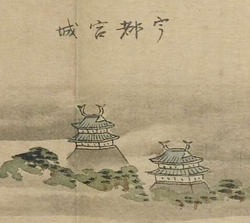 宇都宮城